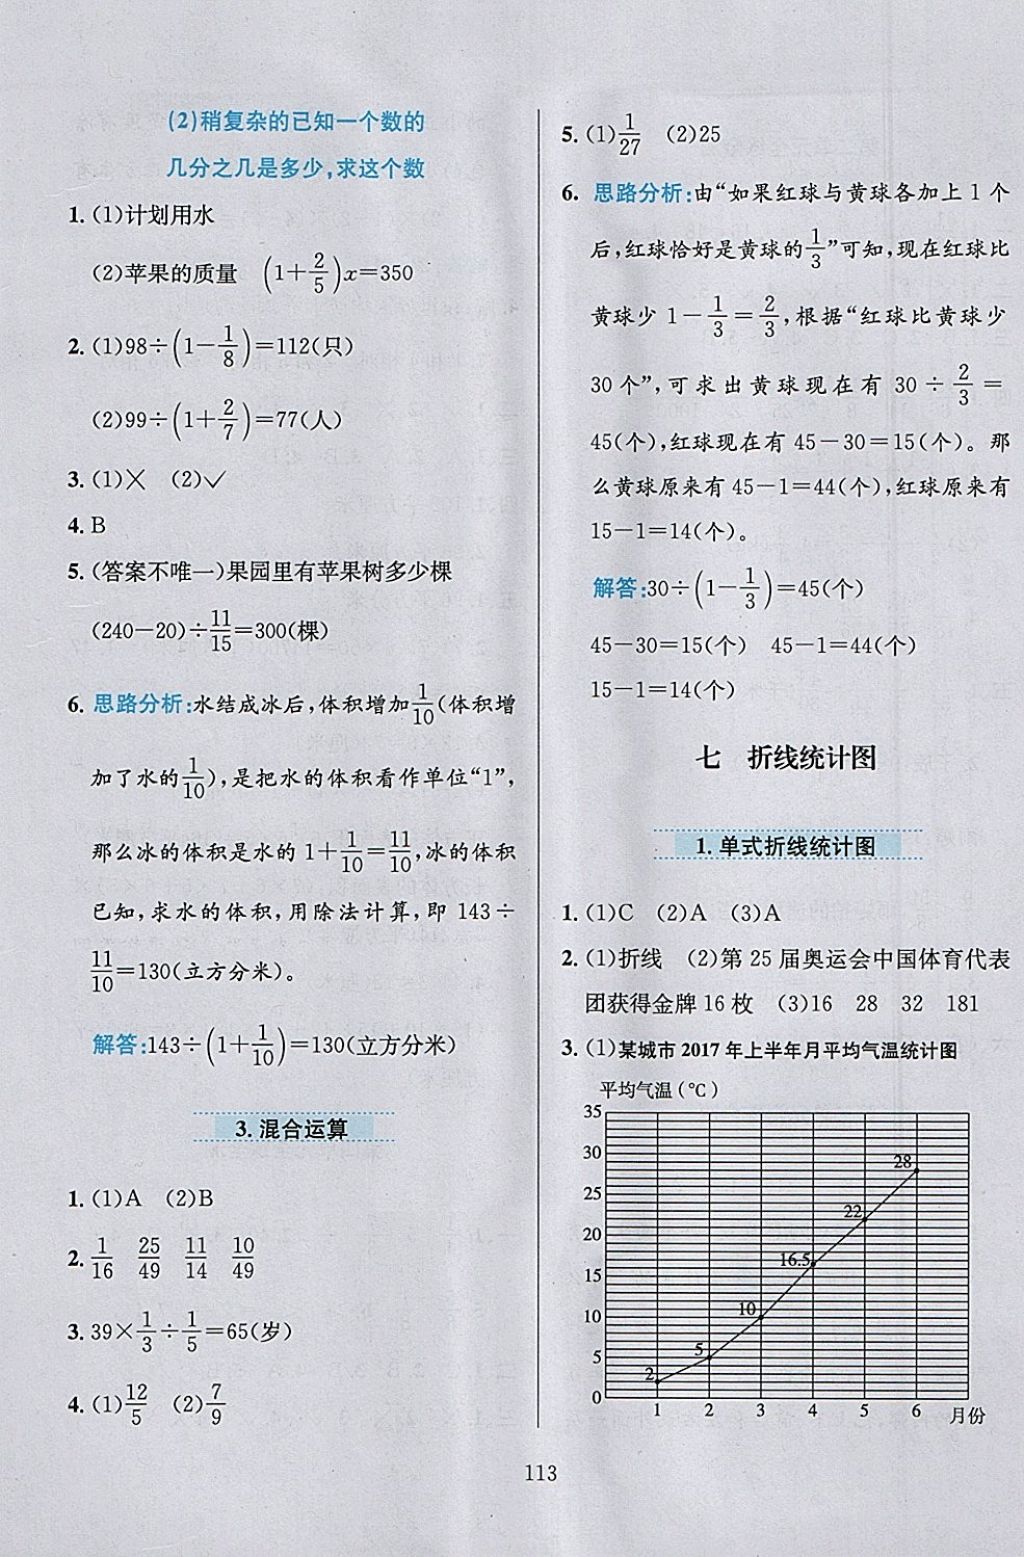 (2)稍复杂的已知一个数的
几分之几是多少,求这个数
1. (1)计划用水
(2)苹果的质量 (1+2/5)x=350
2. (1)98÷(1-1/8)=112(只)
(2)99÷(1+2/7)=77(人)
3. (1)× (2)✓
4. B
5. (答案不唯一)果园里有苹果树多少棵
(240-20)÷11/15=300(棵)
6. 思路分析:水结成冰后,体积增加1/10(体积增
加了水的1/10),是把水的体积看作单位“1”,
那么冰的体积是水的1+1/10=11/10,冰的体积
已知,求水的体积,用除法计算,即143÷
11/10=130(立方分米)。
解答:143÷(1+1/10)=130(立方分米)
3. 混合运算
1. (1)A (2)B
2. 1/16 25/49 11/14 10/49
3. 39×1/3÷1/5=65(岁)
4. (1)12/5 (2)7/9
5. (1)1/27 (2)25
6. 思路分析:由“如果红球与黄球各加上1个
后,红球恰好是黄球的1/3”可知,现在红球比
黄球少1-1/3=2/3,根据“红球比黄球少
30个”,可求出黄球现在有30÷2/3=
45(个),红球现在有45-30=15(个)。那
么黄球原来有45-1=44(个),红球原来有
15-1=14(个)。
解答:30÷(1-1/3)=45(个)
45-30=15(个) 45-1=44(个)
15-1=14(个)
七 折线统计图
1. 单式折线统计图
1. (1)C (2)A (3)A
2. (1)折线 (2)第25届奥运会中国体育代表
团获得金牌16枚 (3)16 28 32 181
3. (1)某城市2017年上半年月平均气温统计图
平均气温(℃)
35
30
28
25
22
20
16.5
15
10
10
5
5
2
0
1 2 3 4 5 6 月份
113